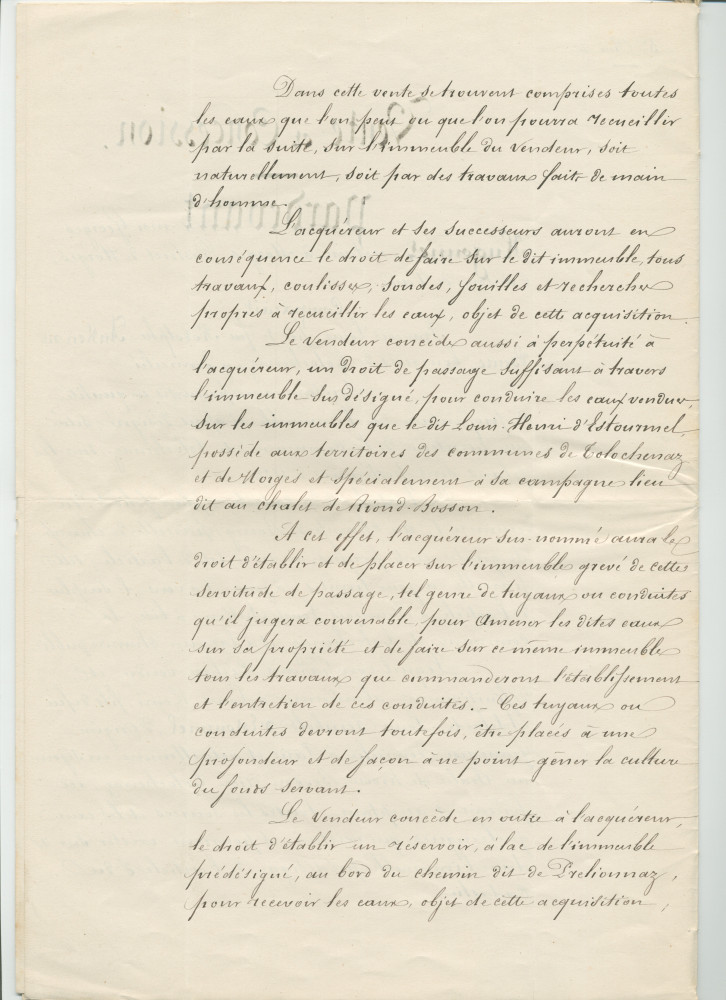 Dans cette vente se trouvent comprises toutes
les eaux que l'on peut ou que l'on pourra recueillir
par la suite, sur l'immeuble du vendeur, soit
naturellement, soit par des travaux faits de main
d'homme.
L'acquéreur et ses successeurs auront en
conséquence le droit de faire sur le dit immeuble, tous
travaux, coulisses, sondes, fouilles et recherches
propres à recueillir les eaux, objet de cette acquisition.
Le Vendeur concède aussi à perpétuité à
l'acquéreur, un droit de passage suffisant à travers
l'immeuble sus désigné, pour conduire les eaux vendues,
sur les immeubles que le dit Louis-Henri d'Estourmel,
possède aux territoires des communes de Tolochenaz
et de Morges et spécialement à sa campagne lieu
dit au chalet de Riond-Bosson.
A cet effet, l'acquéreur sus-nommé aura le
droit d'établir et de placer sur l'immeuble grevé de cette
servitude de passage, tel genre de tuyaux ou conduites
qu'il jugera convenable, pour amener les dites eaux
sur sa propriété et de faire sur ce même immeuble
tous les travaux que commanderont l'établissement
et l'entretien de ces conduites. – Ces tuyaux ou
conduites devront toutefois, être placés à une
profondeur et de façon à ne point gêner la culture
du fonds servant.
Le Vendeur concède en outre à l'acquéreur,
le droit d'établir un réservoir, à lac de l'immeuble
prédésigné, au bord du chemin dit de Prelionnaz,
pour recevoir les eaux, objet de cette acquisition,